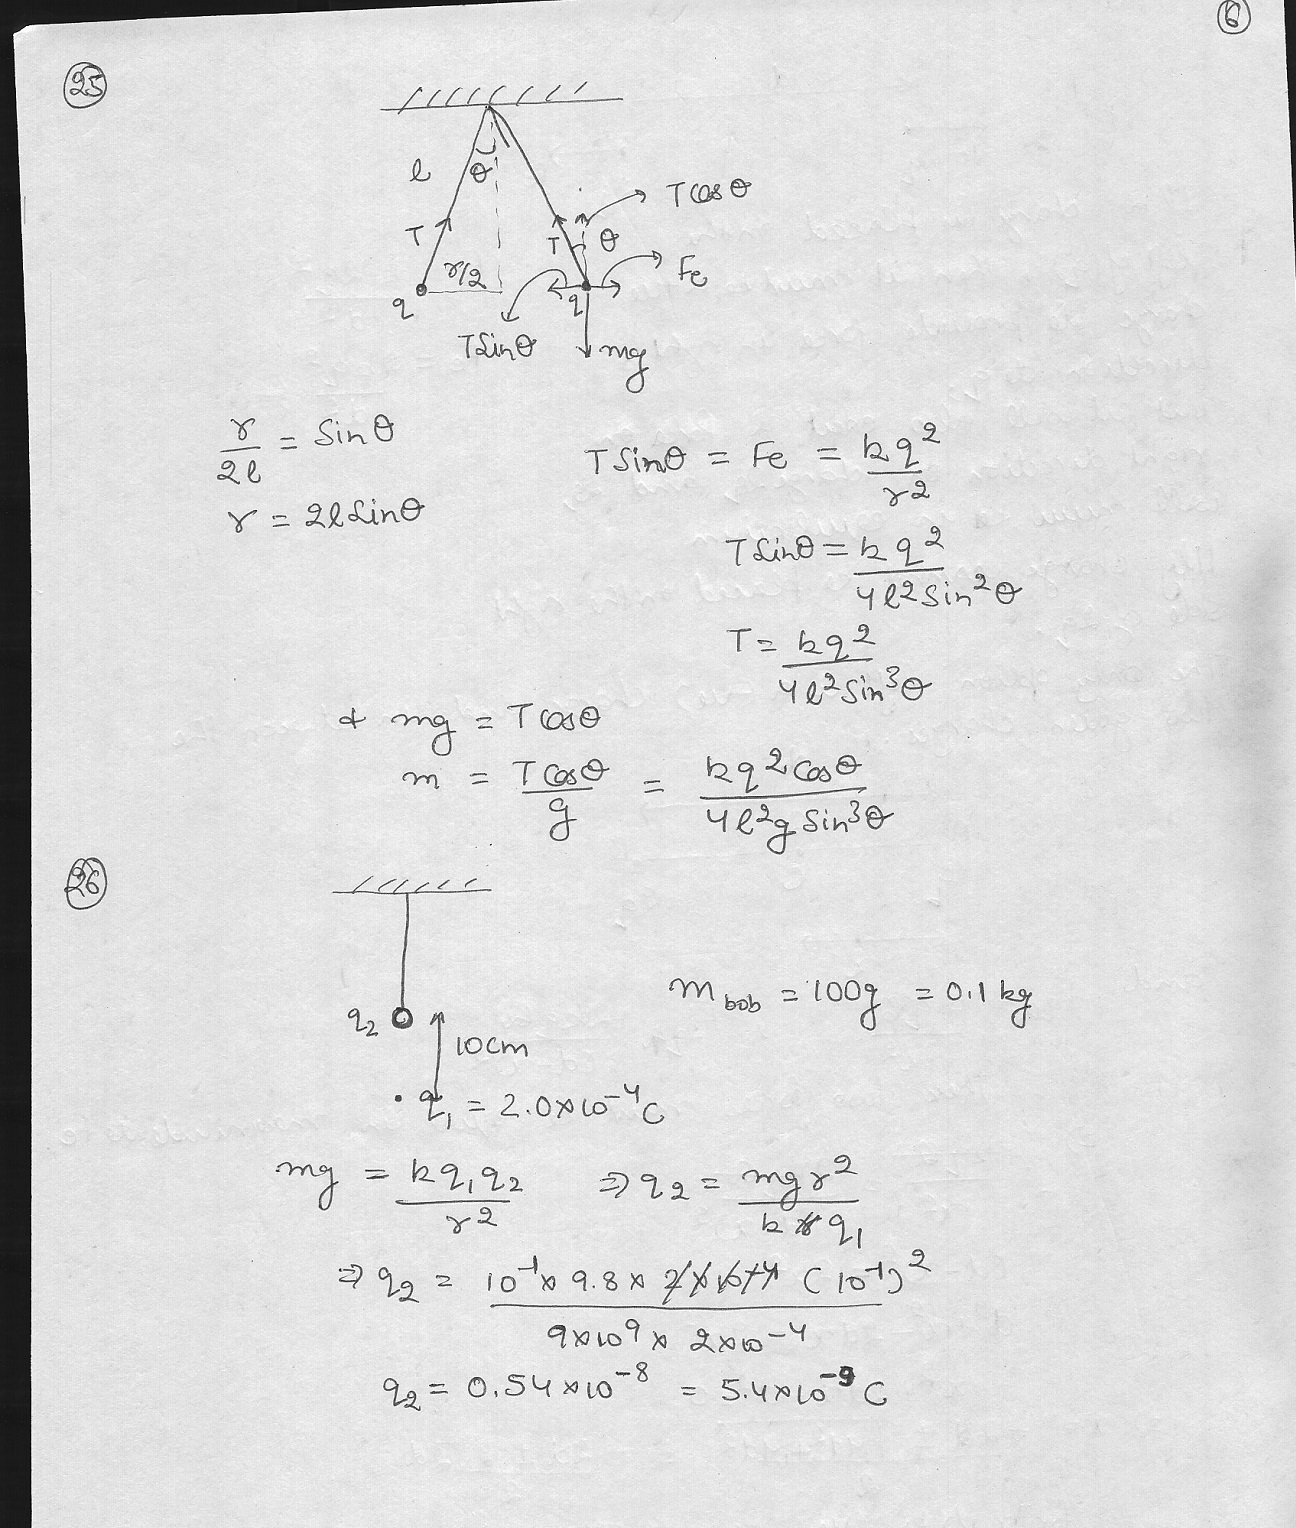 6
25
l θ
T cosθ
T
T θ
r/2
Fe
q
q
T Sinθ
mg
r/2l = Sinθ
r = 2l Sinθ
T Sinθ = Fe = kq²/r²
T Sinθ = kq²/4l²Sin²θ
T = kq²/4l²Sin³θ
& mg = T cosθ
m = T cosθ/g = kq² cosθ/4l²g Sin³θ
26
q₂
m bob = 100g = 0.1 kg
10cm
q₁ = 2.0×10⁻⁴C
mg = kq₁q₂/r² ⇒ q₂ = mgr²/k q₁
⇒ q₂ = 10⁻¹ × 9.8 × (10⁻¹)²/9×10⁹ × 2×10⁻⁴
q₂ = 0.54×10⁻⁸ = 5.4×10⁻⁹ C